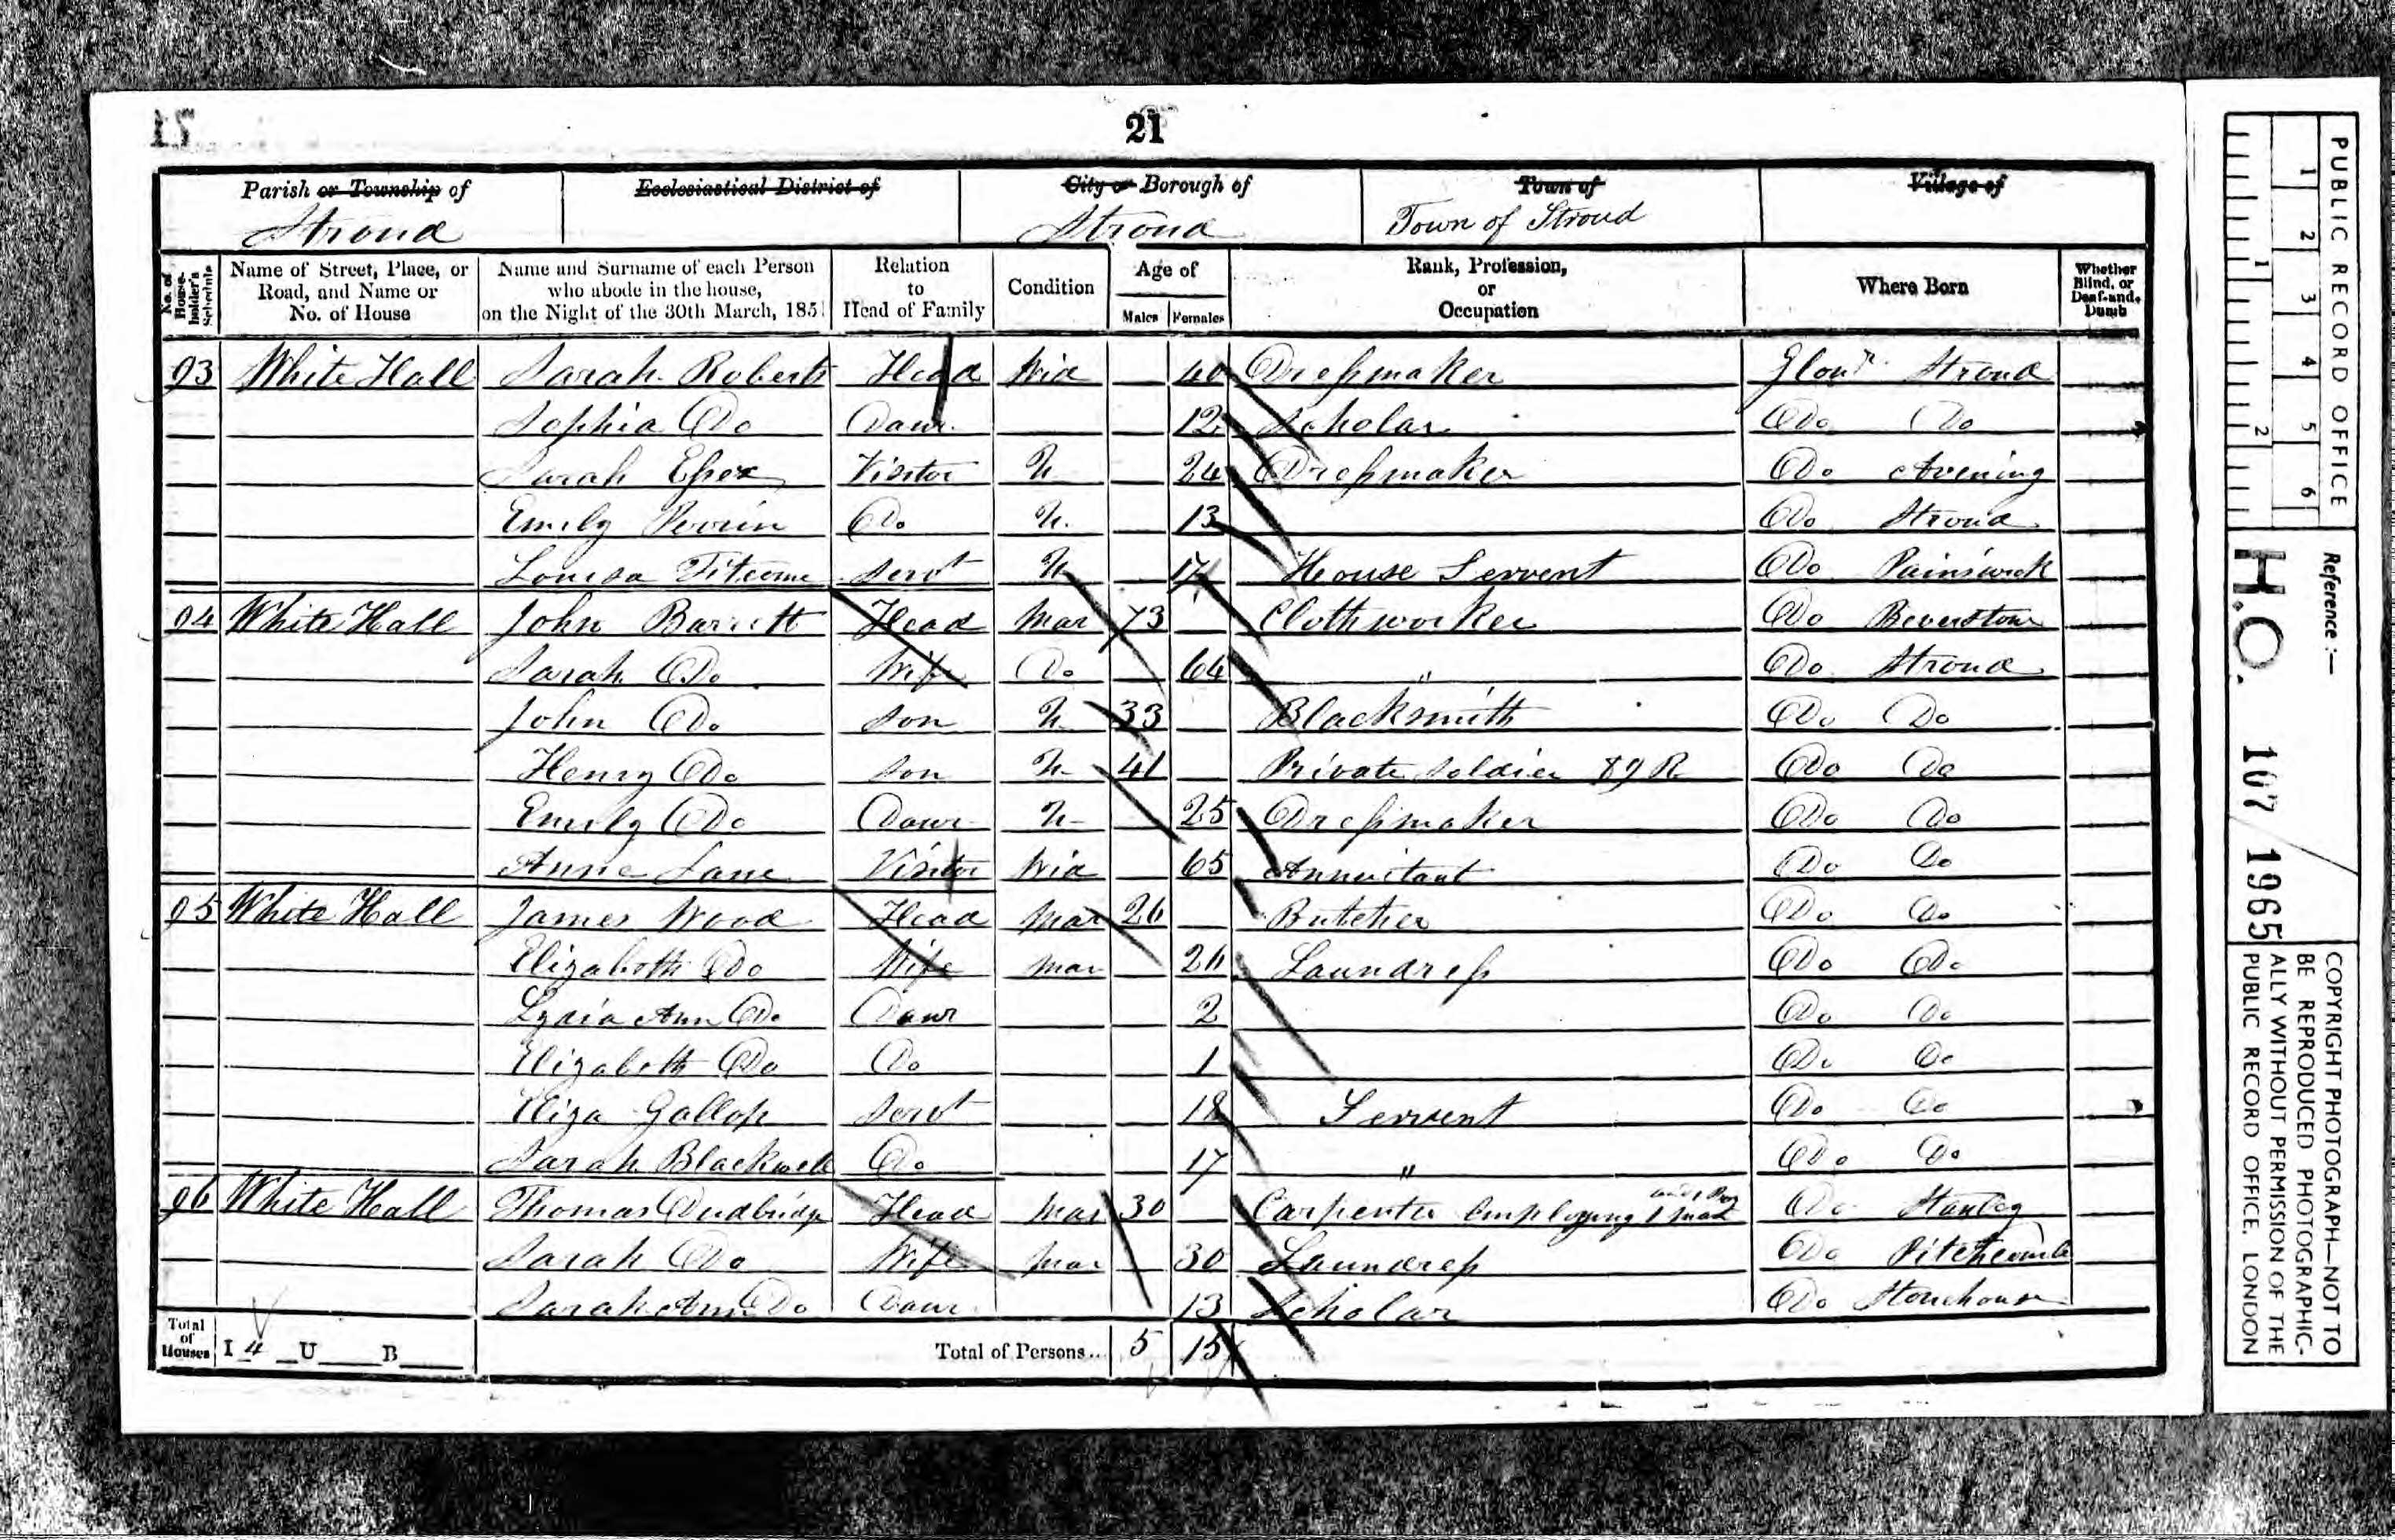 21
Parish or Township of Ecclesiastical District of City or Borough of Town of Village of
Stroud Stroud Town of Stroud
No. of House-holder's Schedule Name of Street, Place, or Road, and Name or No. of House Name and Surname of each Person who abode in the house, on the Night of the 30th March, 1851 Relation to Head of Family Condition Age of Males Females Rank, Profession, or Occupation Where Born Whether Blind, or Deaf-and-Dumb
93 White Hall Sarah Roberts Head Wid 40 Dressmaker Glour Stroud
Sophia Do Daur 12 Scholar Do Do
Sarah Essex Visitor U 24 Dressmaker Do Avening
Emily Perrin Do U 13 Do Stroud
Louisa Titcome Servt U 17 House Servent Do Painswick
94 White Hall John Barrett Head Mar 73 Clothworker Do Beverstone
Sarah Do Wife Do 64 " Do Stroud
John Do Son U 33 Blacksmith Do Do
Henry Do Son U 41 Private Soldier 89 R Do Do
Emily Do Daur U 25 Dressmaker Do Do
Anne Lane Visitor Wid 65 Annuitant Do Do
95 White Hall James Wood Head Mar 26 Butcher Do Do
Elizabeth Do Wife Mar 26 Laundress Do Do
Lydia Ann Do Daur 2 Do Do
Elizabeth Do Do 1 Do Do
Eliza Gallop Servt 18 Servent Do Do
Sarah Blackwell Do 17 " Do Do
96 White Hall Thomas Dudbridge Head Mar 30 Carpenter Employing 1 man and 1 Boy Do Stanley
Sarah Do Wife Mar 30 Laundress Do Pitchcombe
Sarah Ann Do Daur 13 Scholar Do Stonehouse
Total of Houses I 4 U B Total of Persons.. 5 15
PUBLIC RECORD OFFICE
1 2 3 4 5 6
1 2
Reference :—
H.O. 107 / 1965
COPYRIGHT PHOTOGRAPH—NOT TO
BE REPRODUCED PHOTOGRAPHIC-
ALLY WITHOUT PERMISSION OF THE
PUBLIC RECORD OFFICE, LONDON